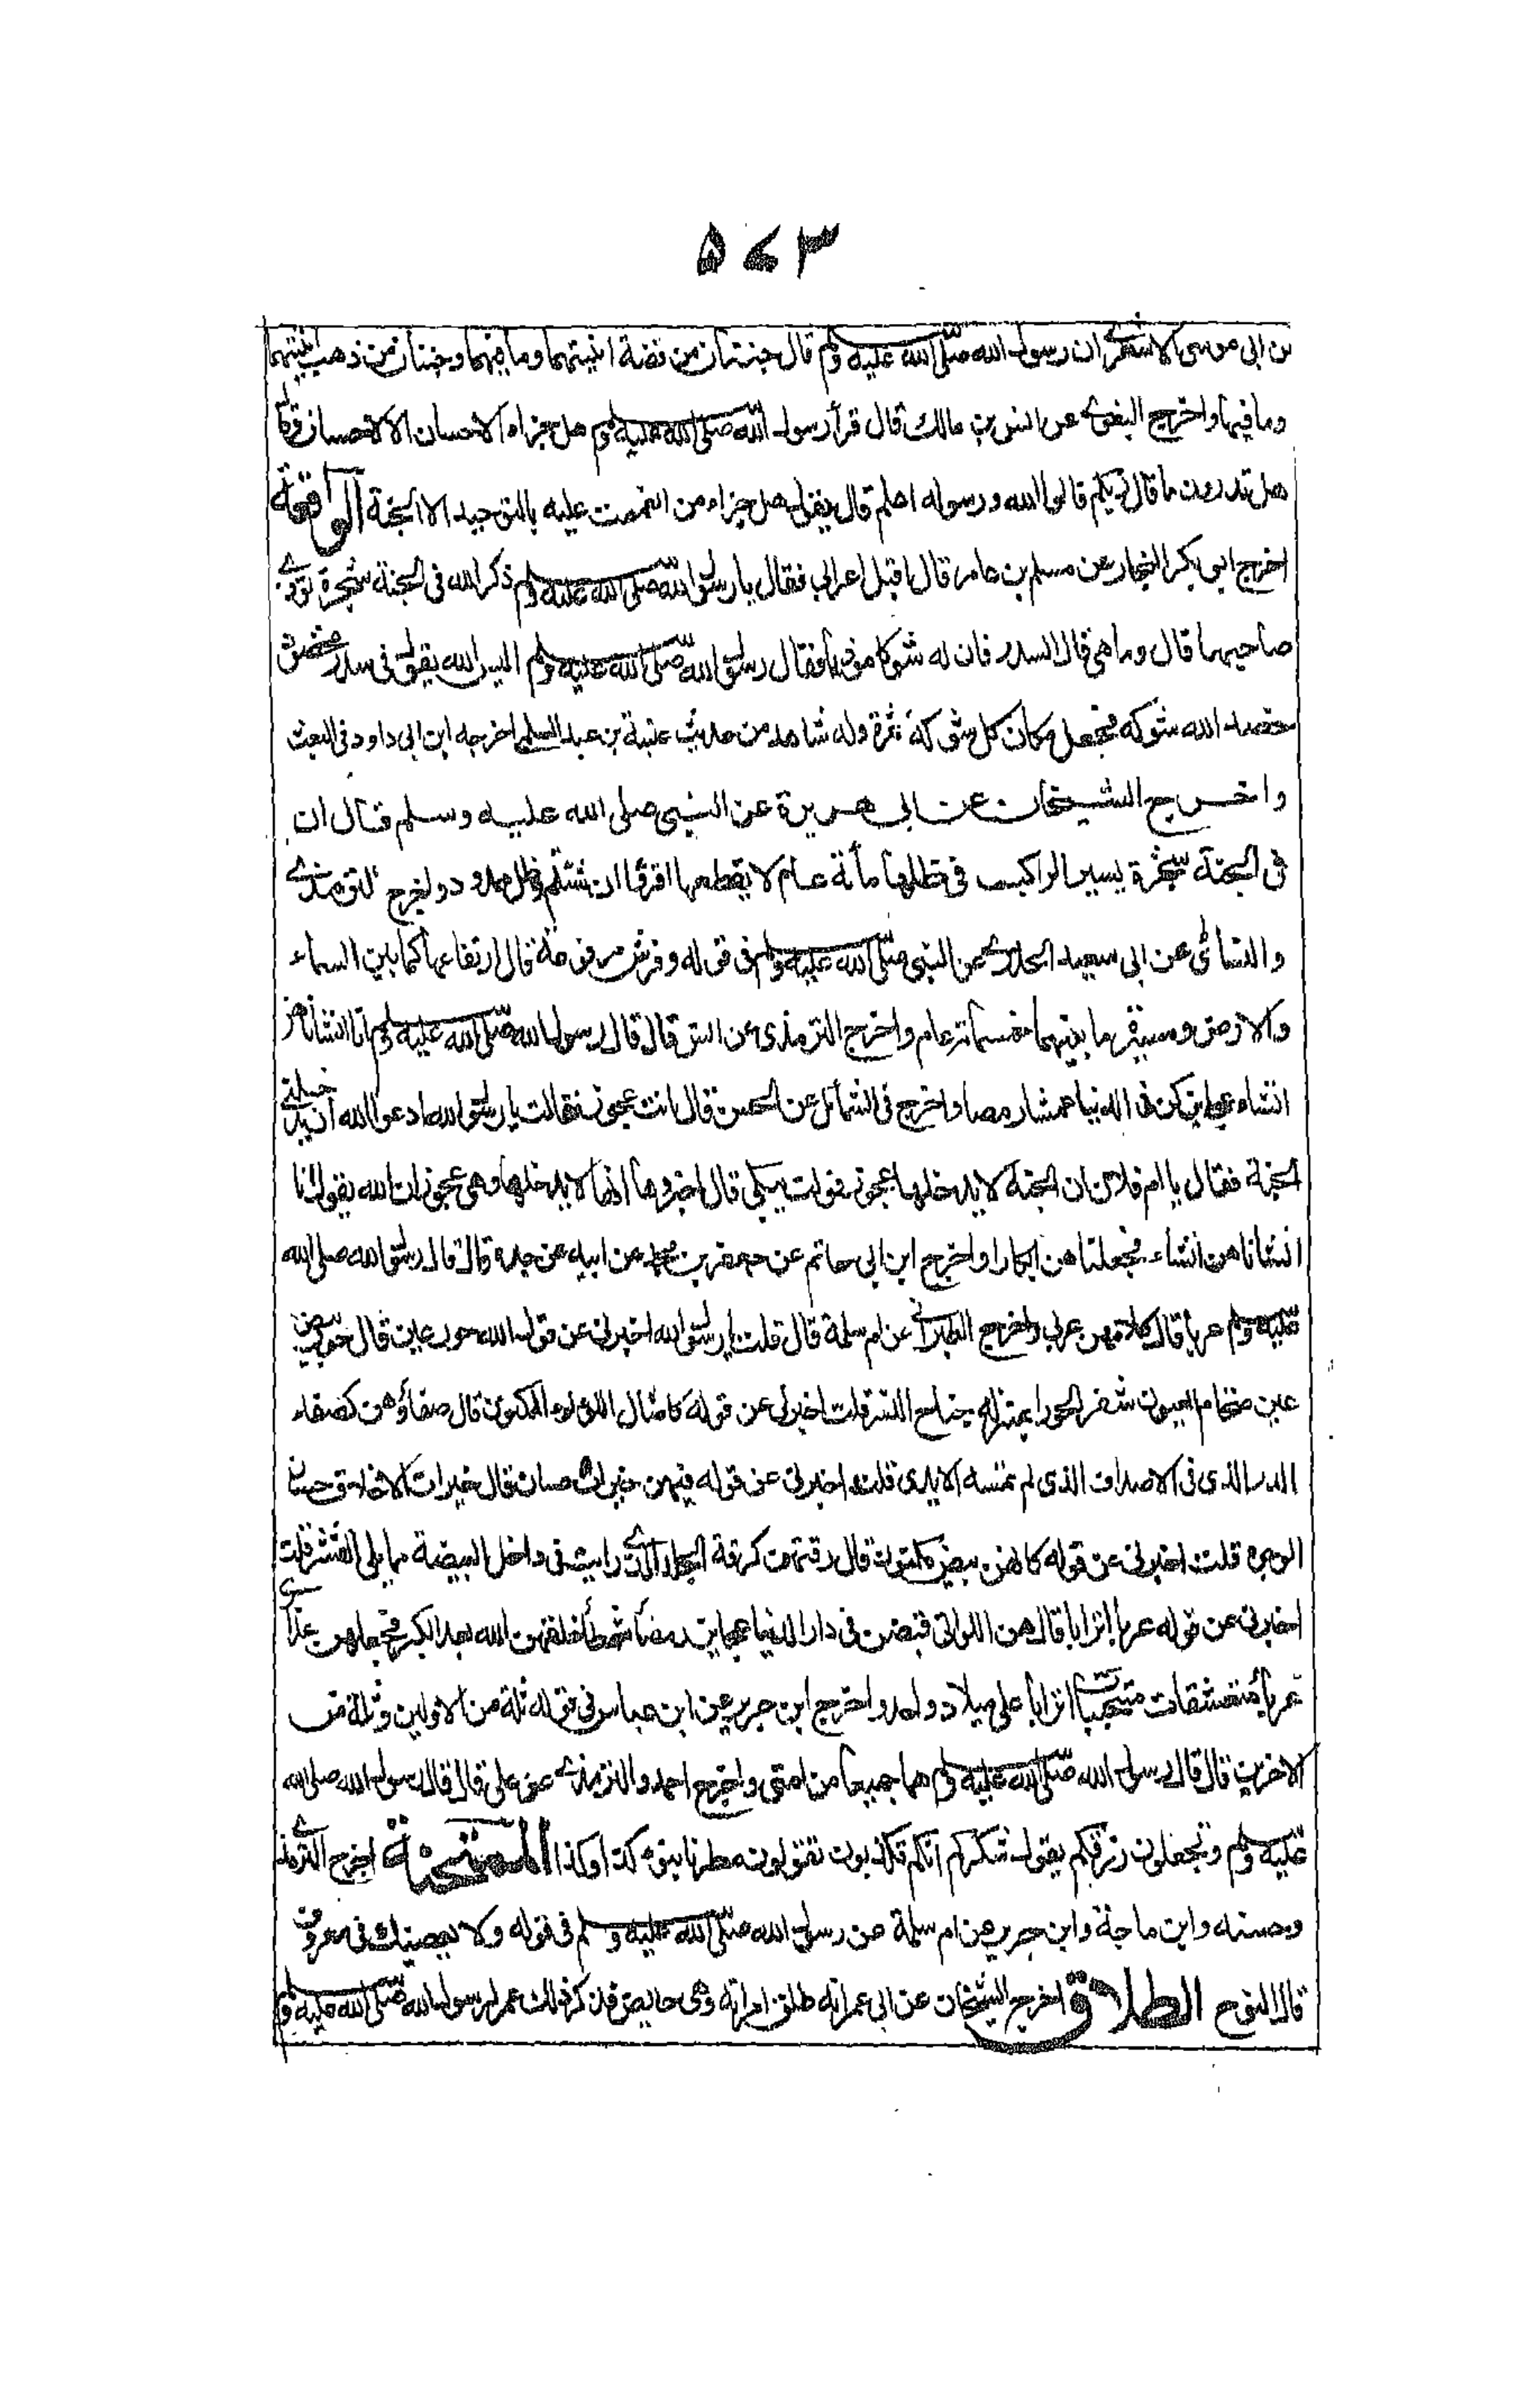 ۵۷۳
بن ابی موسی الاشعری ان رسول الله صلی الله علیه وسلم قال جنتان من فضة انیتهما وما فیهما وجنتان من ذهب انیتهما
وما فیهما واخرج البغوی عن انس بن مالک قال قرأ رسول الله صلی الله علیه وسلم هل جزاء الاحسان الا الاحسان وقال
هل تدرون ما قال ربکم قالوا الله ورسوله اعلم قال یقول هل جزاء من انعمت علیه بالتوحید الا الجنة الواقعة
اخرج ابو بکر النجار عن مسلم بن عامر قال اقبل اعرابی فقال یا رسول الله صلی الله علیه وسلم ذکر الله فی الجنة شجرة توذی
صاحبها قال وما هی قال السدر فان له شوکا موذیا فقال رسول الله صلی الله علیه وسلم الیس الله یقول فی سدر مخضود
خضد الله شوکه فجعل مکان کل شوکة ثمرة وله شاهد من حدیث عتبة بن عبد السلمی اخرجه ابن ابی داود فی البعث
واخرج الشیخان عن ابی هریرة عن النبی صلی الله علیه وسلم قال ان
فی الجنة شجرة یسیر الراکب فی ظلها مأیة عام لا یقطعها اقرؤا ان شئتم وظل ممدود واخرج الترمذی
والنسائی عن ابی سعید الخدری عن النبی صلی الله علیه وسلم فی قوله وفرش مرفوعة قال ارتفاعها کما بین السماء
والارض ومسیرة ما بینهما خمسمأیة عام واخرج الترمذی عن انس قال قال رسول الله صلی الله علیه وسلم انا انشأناهن
انشاء عجایز کن فی الدنیا عمشا رمصا واخرج فی الشمائل عن الحسن قال اتت عجوز فقالت یا رسول الله ادعو الله ان یدخلنی
الجنة فقال یا ام فلان ان الجنة لا یدخلها عجوز فولت تبکی قال اخبروها انها لا یدخلها وهی عجوز ان الله یقول انا
انشأناهن انشاء فجعلناهن ابکارا واخرج ابن ابی حاتم عن جعفر بن محمد عن ابیه عن جده قال قال رسول الله صلی الله
علیه وسلم عربا قال کلامهن عربی واخرج الطبرانی عن ام سلمة قال قلت یا رسول الله اخبرنی عن قول الله حور عین قال حور بیض
عین ضخام العیون شفر الحوراء بمنزلة جناح النسر قلت اخبرنی عن قوله کامثال اللؤلوء المکنون قال صفاؤهن کصفاء
الدر الذی فی الاصداف الذی لم تمسه الایدی قلت اخبرنی عن قوله فیهن خیرات حسان قال خیرات الاخلاق حسان
الوجوه قلت اخبرنی عن قوله کانهن بیض مکنون قال رقتهن کرقة الجلد الذی رایت فی داخل البیضة مما یلی القشر قلت
اخبرنی عن قوله عربا اترابا قال هن اللواتی قبضن فی دار الدنیا عجایز رمضا شمطا خلقهن الله بعد الکبر فجعلهن عذاری
عربا متعشقات متحببات اترابا علی میلاد واحد واخرج ابن جریر عن ابن عباس فی قوله ثلة من الاولین وثلة من
الاخرین قال قال رسول الله صلی الله علیه وسلم هما جمیعا من امتی واخرج احمد والترمذی عن علی قال قال رسول الله صلی الله
علیه وسلم وتجعلون رزقکم یقول شکرکم انکم تکذبون تقولون مطرنا بنوء کذا وکذا الممتحنة اخرج الترمذی
وحسنه وابن ماجة وابن جریر عن ام سلمة عن رسول الله صلی الله علیه وسلم فی قوله ولا یعصینک فی معروف
قال النوح الطلاق اخرج الشیخان عن ابی عمر انه طلق امراته وهی حایض فذکر ذلک عمر لرسول الله صلی الله علیه وسلم